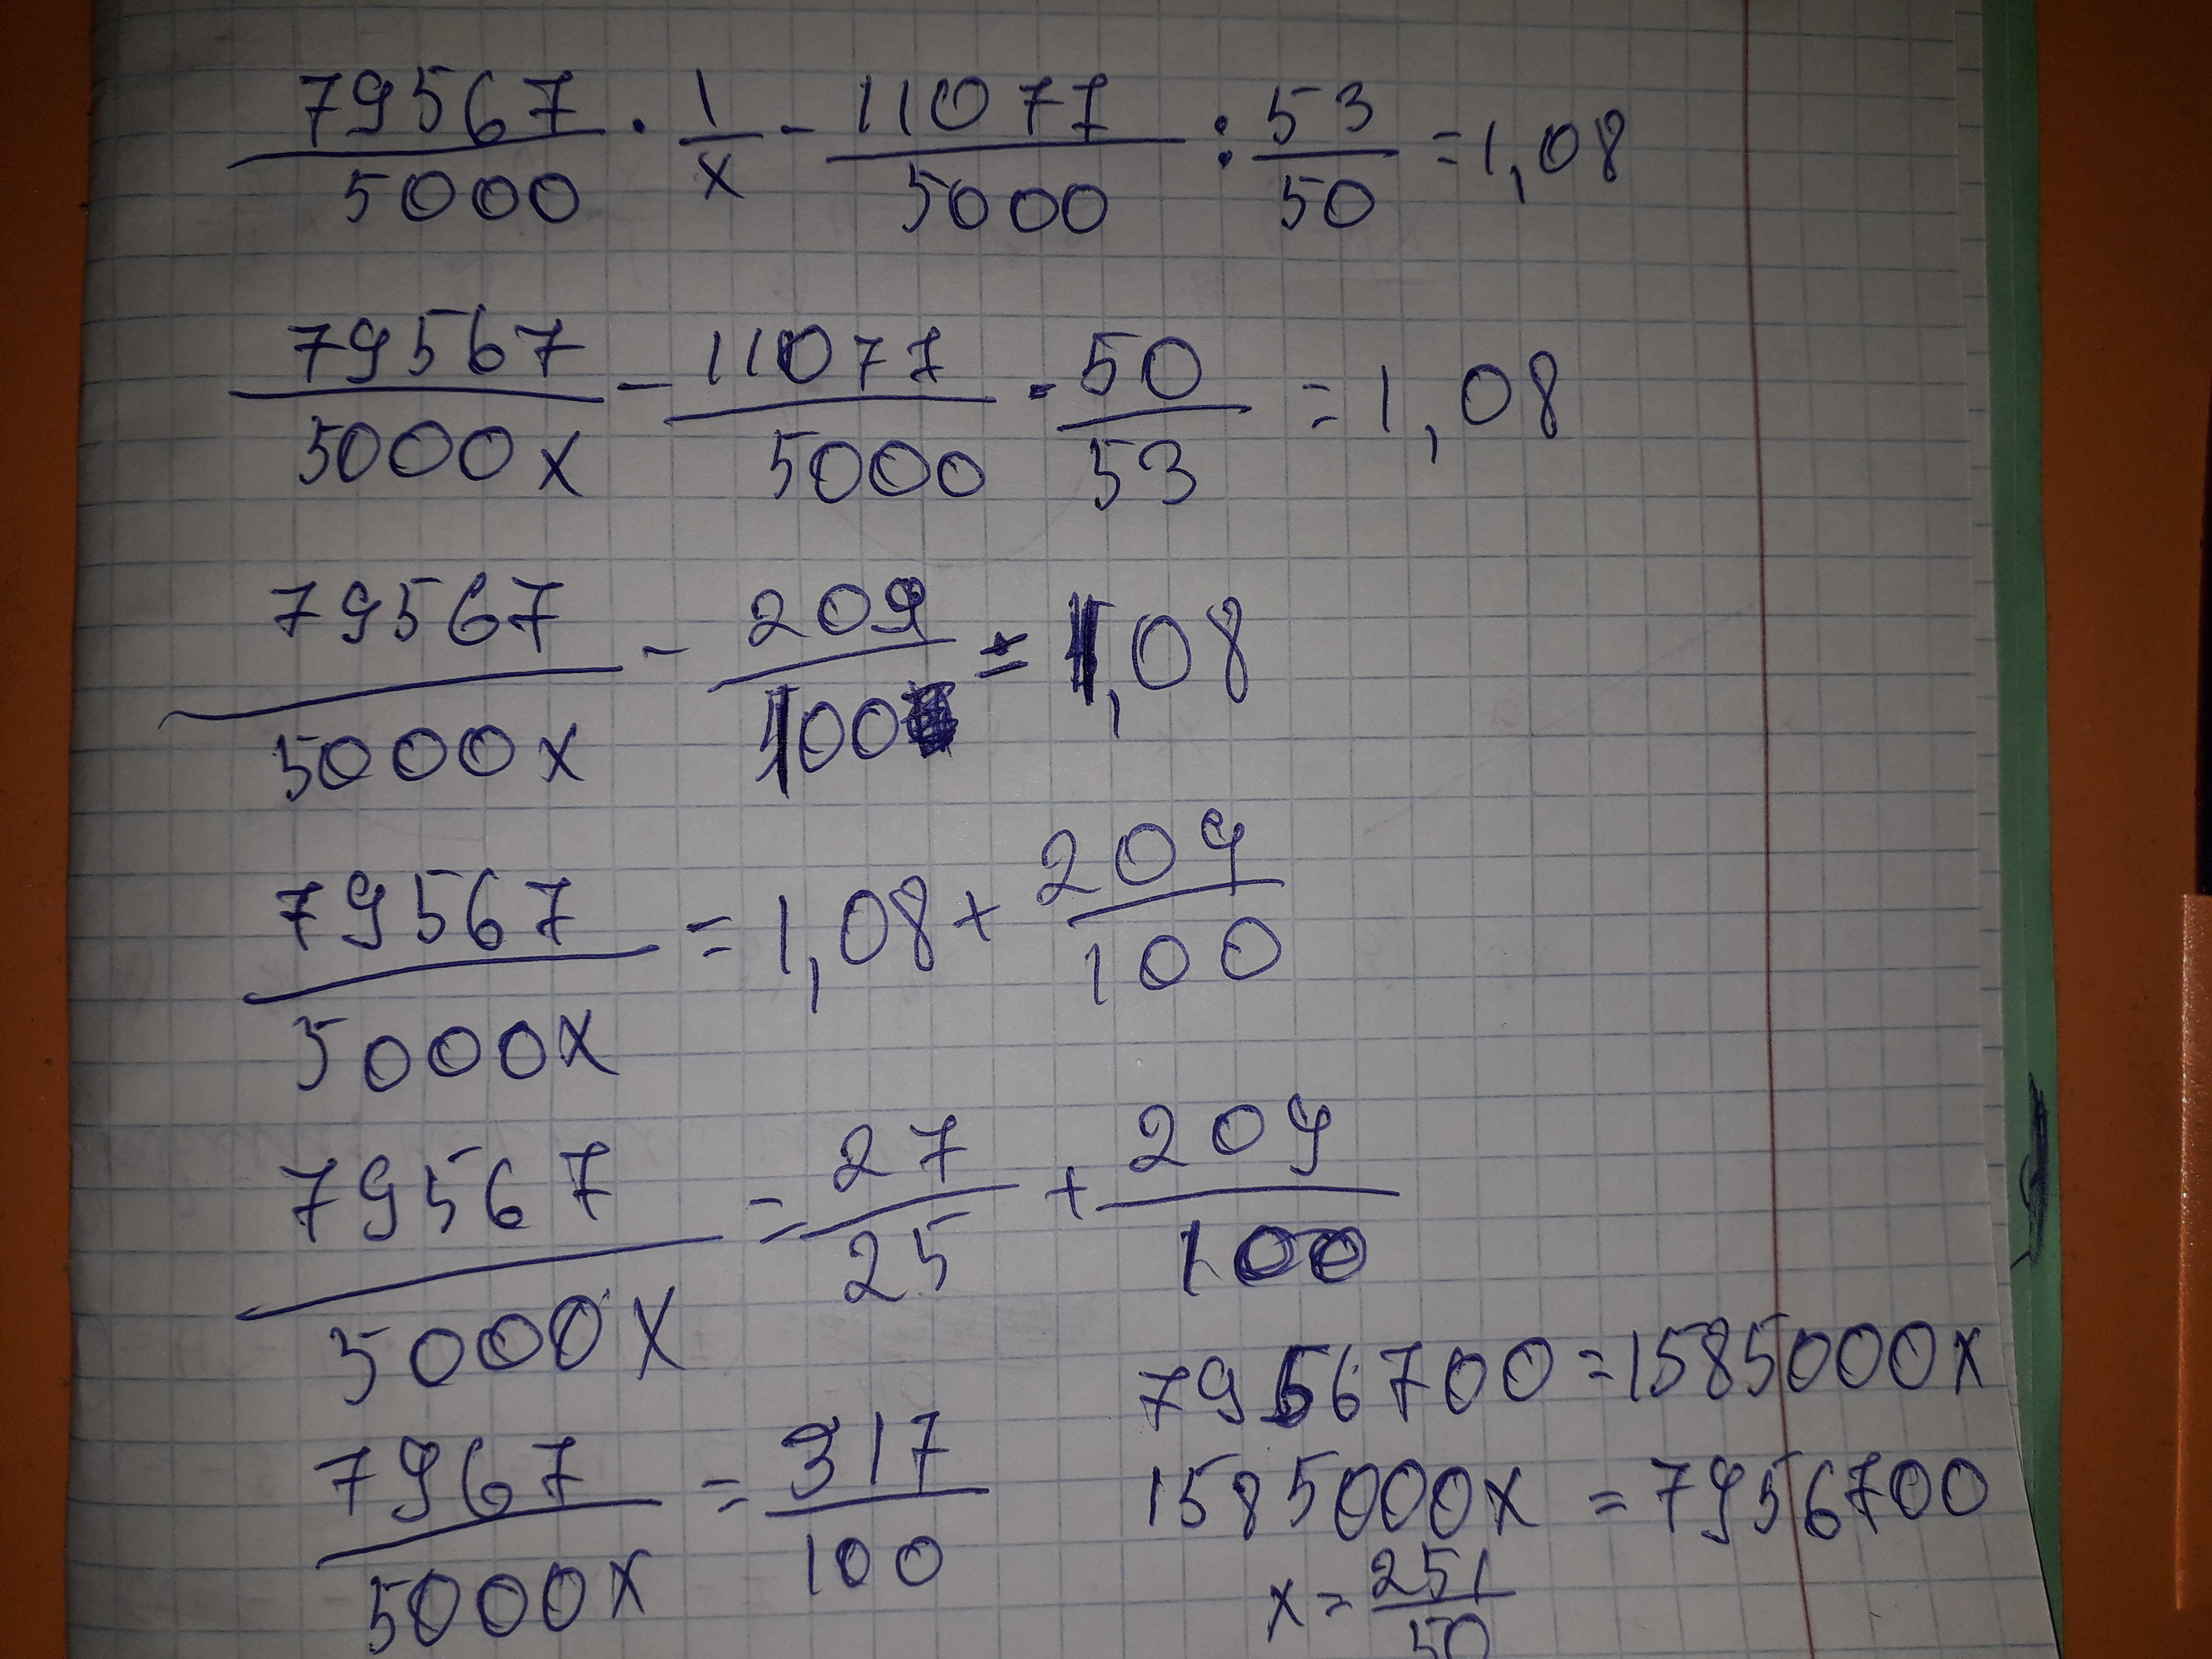 79567/5000 · 1/x - 11077/5000 : 53/50 = 1,08
79567/5000x - 11077/5000 · 50/53 = 1,08
79567/5000x - 209/100 = 1,08
79567/5000x = 1,08 + 209/100
79567/5000x = 27/25 + 209/100
7967/5000x = 317/100
7956700 = 1585000x
1585000x = 7956700
x = 251/50